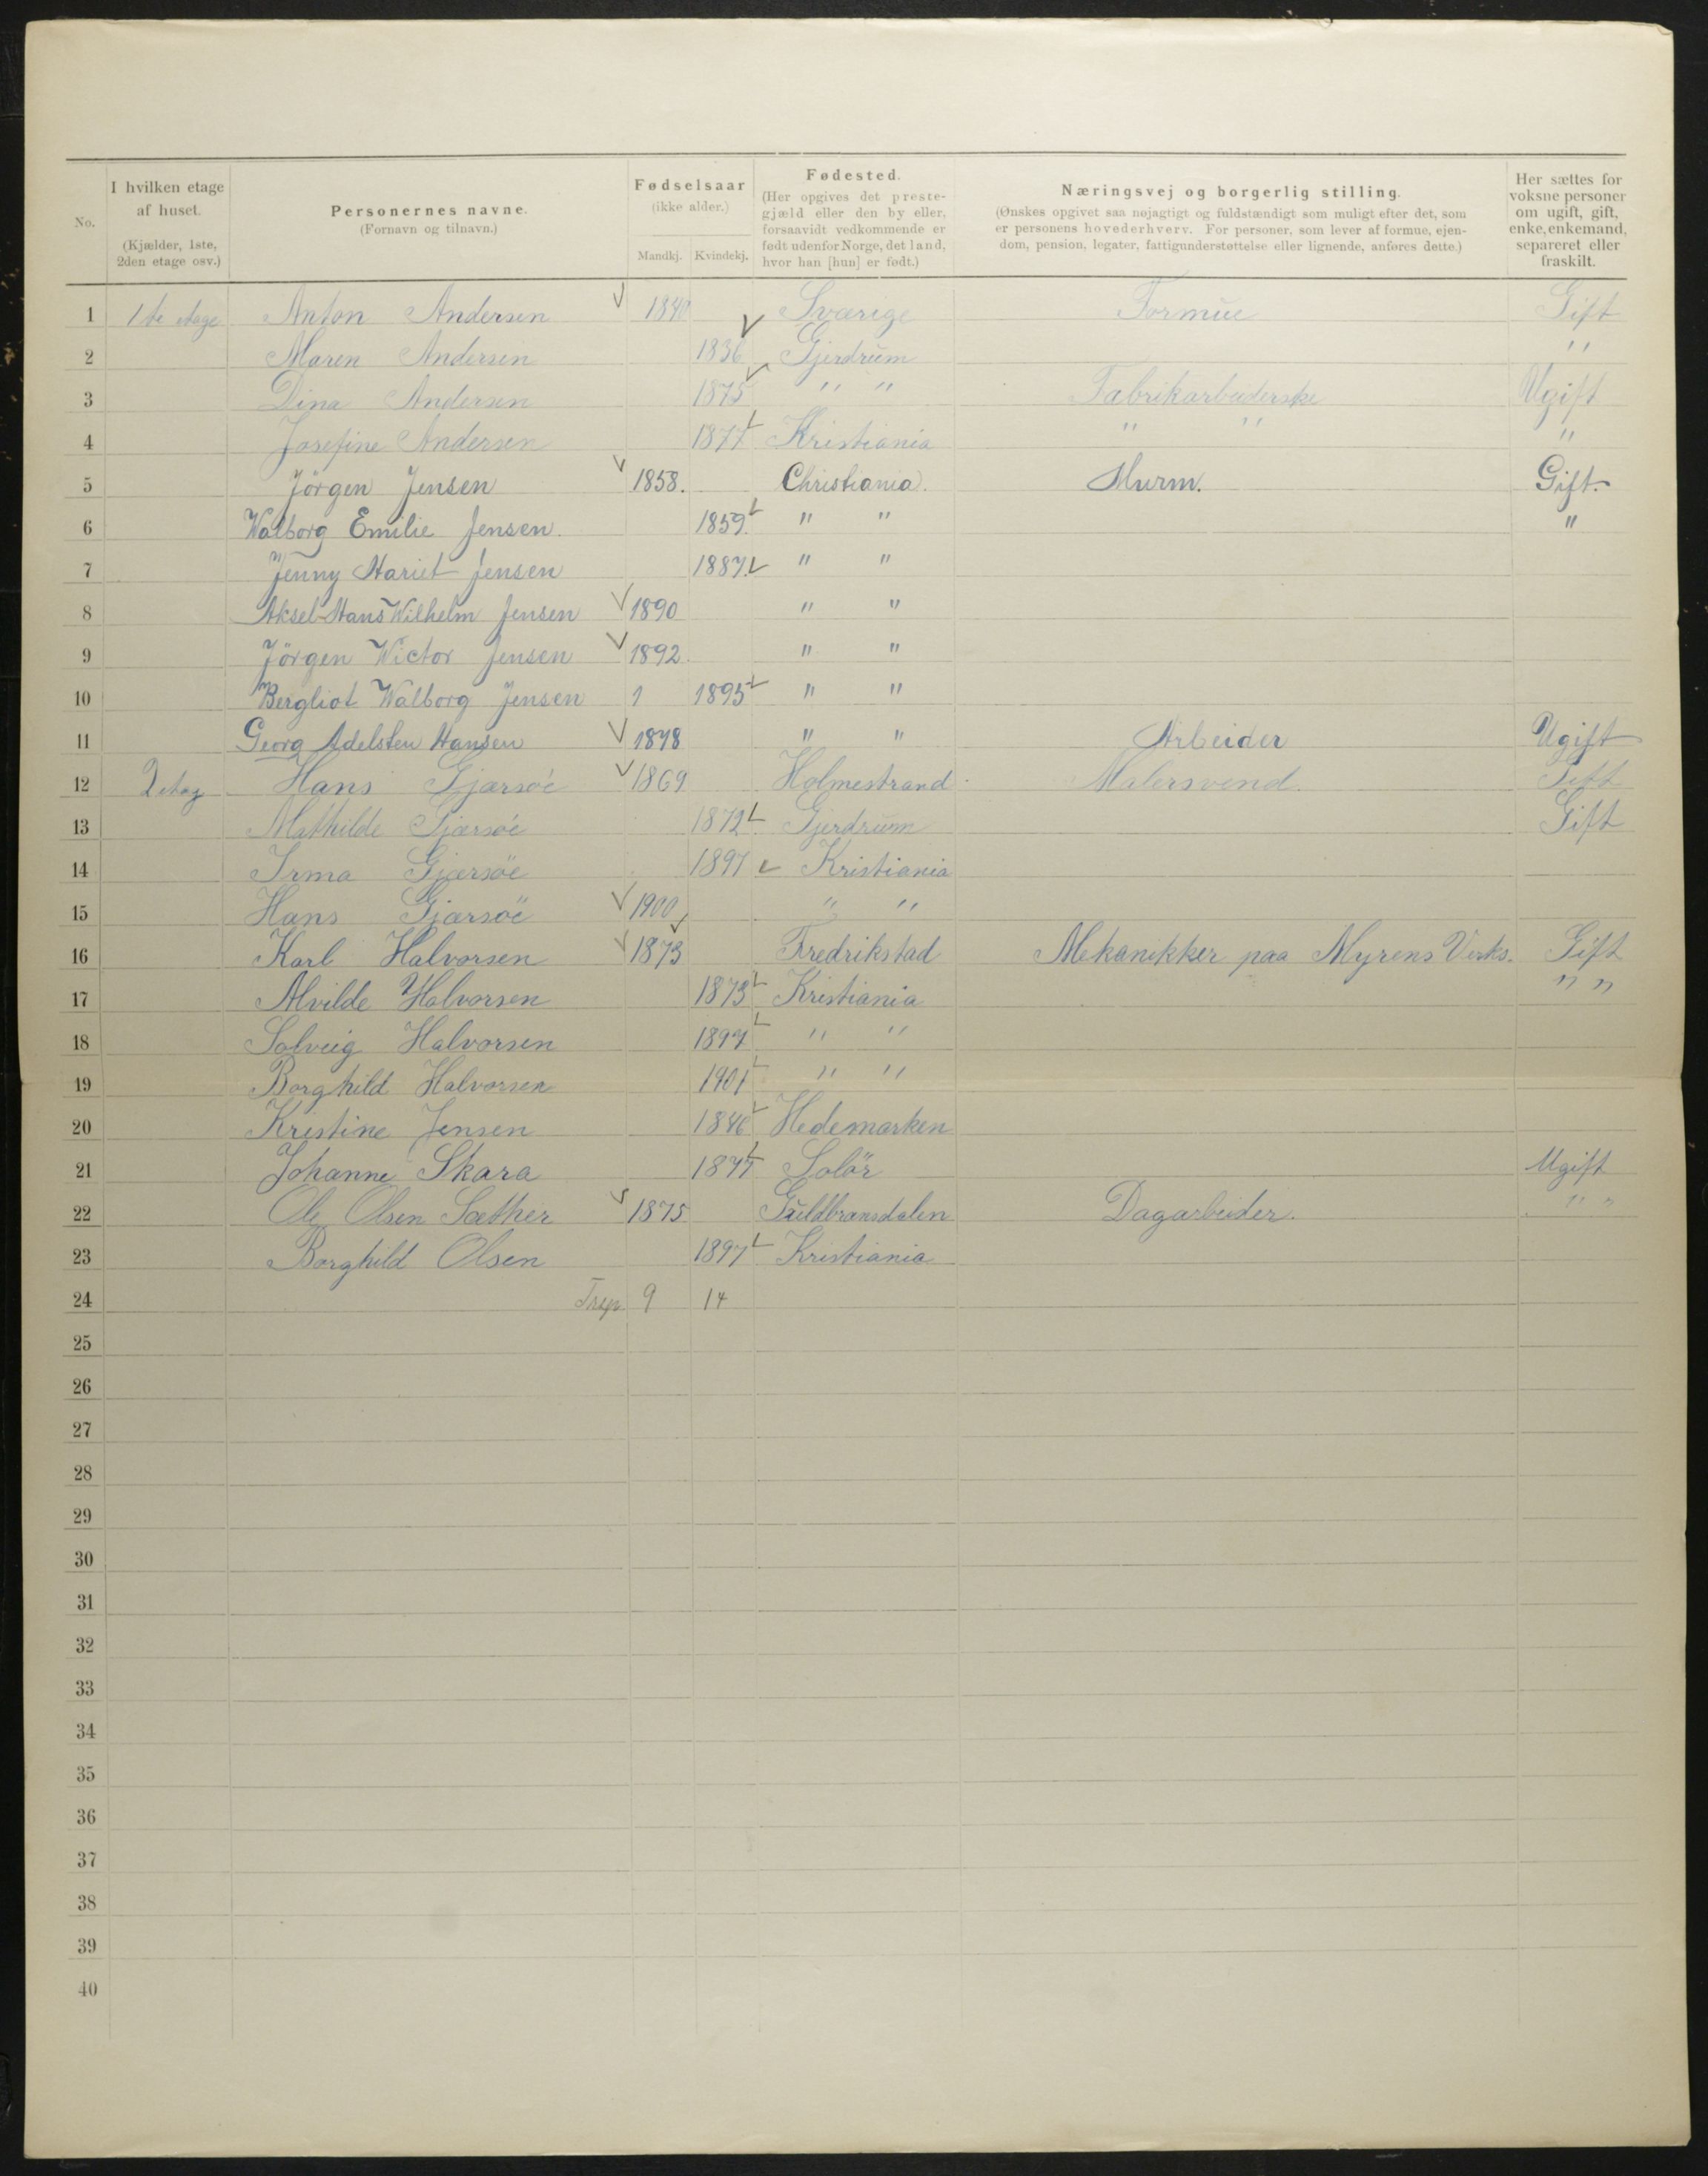 No.
I hvilken etage af huset. (Kjælder, 1ste, 2den etage osv.)
Personernes navne. (Fornavn og tilnavn.)
Fødselsaar (ikke alder.) Mandkj. Kvindekj.
Fødested. (Her opgives det prestegjæld eller den by eller, forsaavidt vedkommende er født udenfor Norge, det land, hvor han [hun] er født.)
Næringsvej og borgerlig stilling. (Ønskes opgivet saa nøjagtigt og fuldstændigt som muligt efter det, som er personens hovederhverv. For personer, som lever af formue, ejendom, pension, legater, fattigunderstøttelse eller lignende, anføres dette.)
Her sættes for voksne personer om ugift, gift, enke, enkemand, separeret eller fraskilt.
1 1te etage Anton Andersen 1840 Sværige Formue Gift
2 Maren Andersen 1836 Gjerdrum "
3 Dina Andersen 1875 " " Fabrikarbeiderske Ugift
4 Josefine Andersen 1877 Kristiania " " "
5 Jörgen Jensen 1858. Christiania. Murm. Gift.
6 Walborg Emilie Jensen. 1859. " " "
7 Jenny Hariet Jensen 1887. " "
8 Aksel Hans Wilhelm Jensen 1890 " "
9 Jörgen Wictor Jensen 1892. " "
10 Bergliot Walborg Jensen 1 1895 " "
11 Georg Adelsten Hansen 1878 " " Arbeider Ugift
12 2 etag Hans Gjærsöe 1869 Holmestrand Malersvend. Gift
13 Mathilde Gjærsöe 1872 Gjerdrum Gift
14 Irma Gjærsöe 1897 Kristiania
15 Hans Gjærsöe 1900 " "
16 Karl Halvorsen 1873 Fredrikstad Mekanikker paa Myrens Verks. Gift
17 Alvilde Halvorsen 1873 Kristiania " "
18 Solveig Halvorsen 1897 " "
19 Borghild Halvorsen 1901 " "
20 Kristine Jensen 1846 Hedemarken
21 Johanne Skara 1877 Solör Ugift
22 Ole Olsen Sæther 1875 Guldbransdalen Dagarbeider. " "
23 Borghild Olsen 1897 Kristiania
24 Trsp. 9 14
25
26
27
28
29
30
31
32
33
34
35
36
37
38
39
40